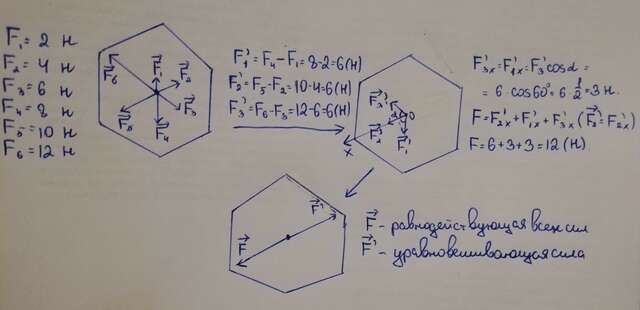 F₁ = 2 н
F₂ = 4 н
F₃ = 6 н
F₄ = 8 н
F₅ = 10 н
F₆ = 12 н
F₁
F₂
F₃
F₄
F₅
F₆
F₁' = F₄ - F₁ = 8-2 = 6 (н)
F₂' = F₅ - F₂ = 10-4 = 6 (н)
F₃' = F₆ - F₃ = 12-6 = 6 (н)
F₃'
O
F₂'
F₁'
x
F₃'ₓ = F₁'ₓ = F₃' cosα =
= 6 · cos60° = 6 · 1/2 = 3 н.
F = F₂'ₓ + F₁'ₓ + F₃'ₓ (F₂' = F₂'ₓ)
F = 6+3+3 = 12 (н)
F'
F
F - равнодействующая всех сил
F' - уравновешивающая сила